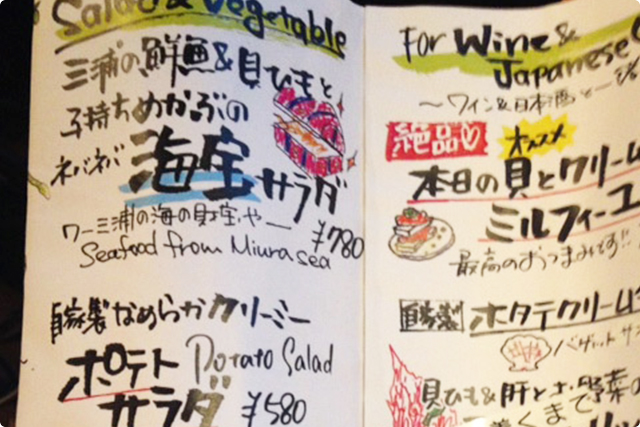 Salad & Vegetable
三浦の鮮魚&貝ひもと
子持ちめかぶの
ネバネバ 海宝サラダ
ワー三浦の海の財宝やー ¥780
Seafood from Miura sea
自家製なめらかクリーミー
ポテト Potato Salad
サラダ ¥580
For Wine &
Japanese
〜ワイン&日本酒と一緒
絶品♡ オススメ
本日の貝とクリーム
ミルフィーユ
最高のおつまみです!!
自家製 ホタテクリーム
バゲット
貝ひも&肝と
まで